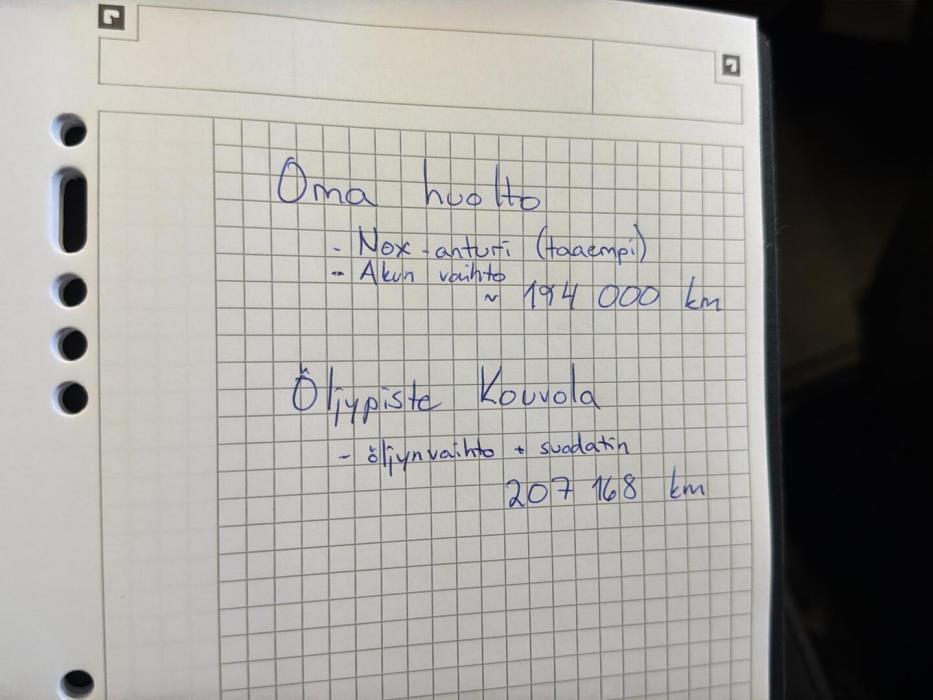 Oma huolto
- Nox-anturi (taaempi)
- Akun vaihto
~ 194 000 km
Öljypiste Kouvola
- öljynvaihto + suodatin
207 168 km